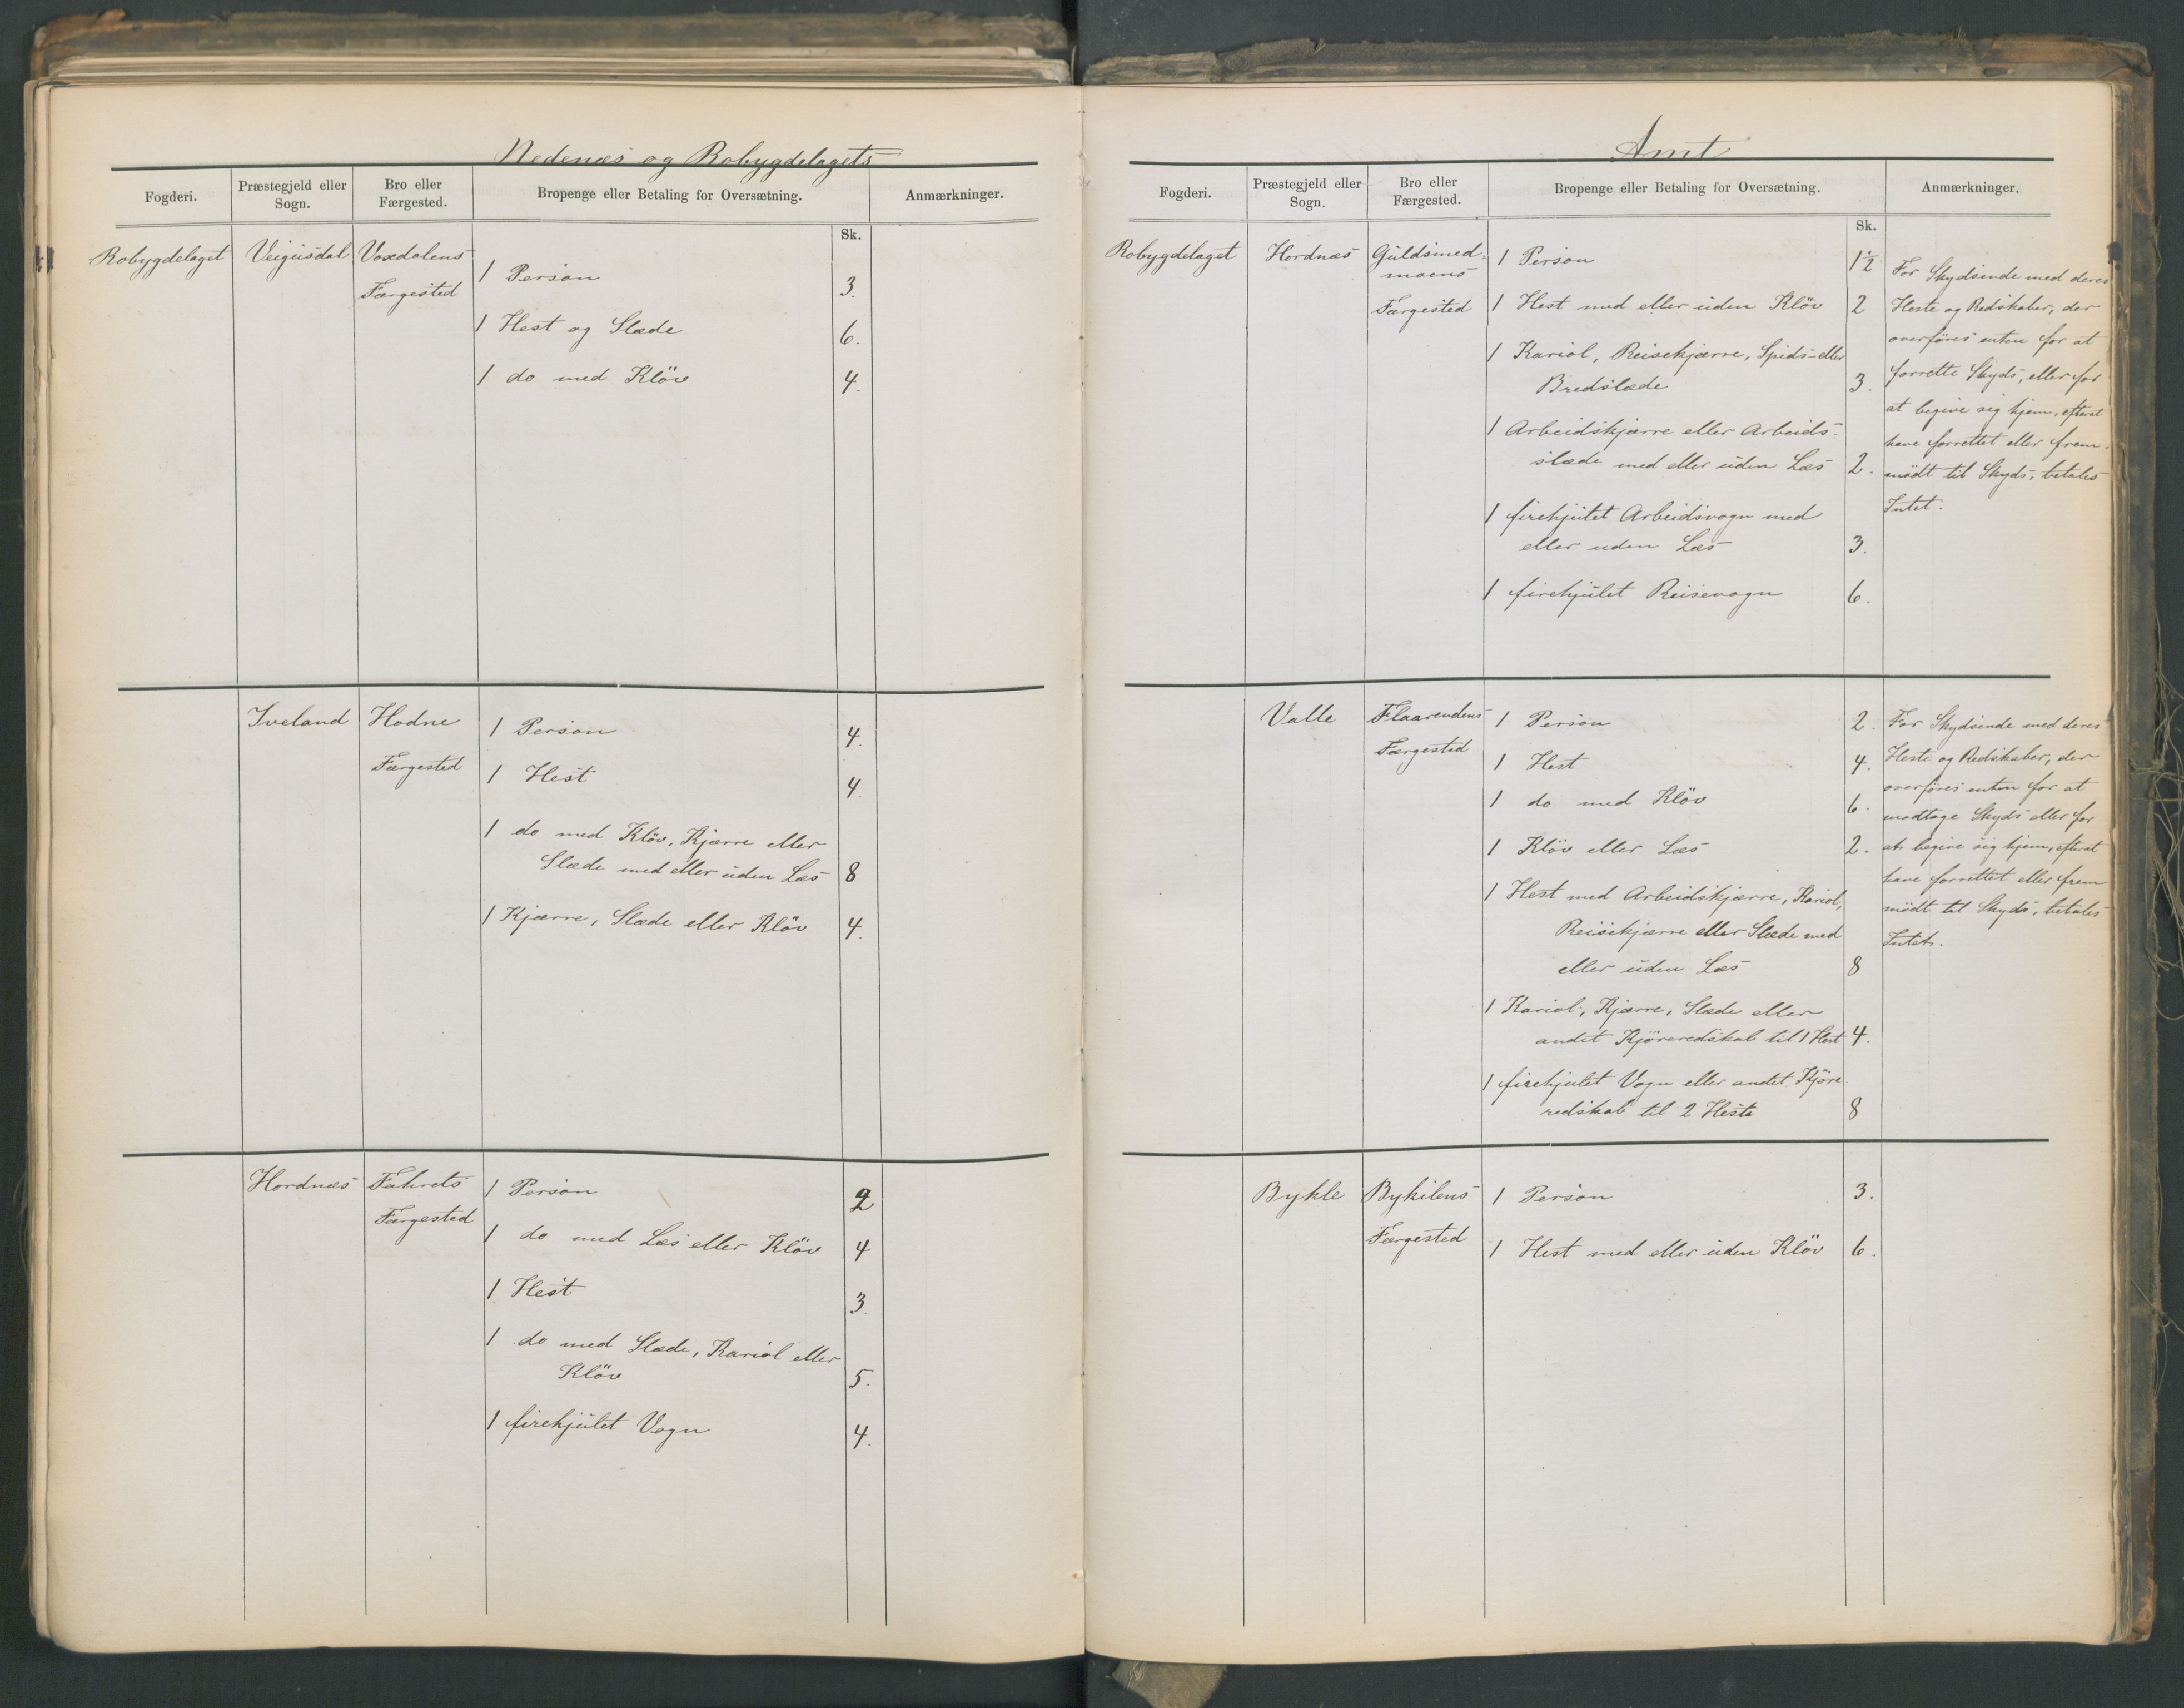 Nedenæs og Robygdelagets
Fogderi.
Præstegjeld eller
Sogn.
Bro eller
Færgested.
Bropenge eller Betaling for Oversætning.
Anmærkninger.
Sk.
Robygdelaget Veigusdal Voxdalens
Færgested
1 Person 3.
1 Hest og Slæde 6.
1 do med Klöv 4.
Iveland Hodne
Færgested
1 Person 4.
1 Hest 4.
1 do med Klöv, Kjærre eller
Slæde med eller uden Læs 8
1 Kjærre, Slæde eller Klöv 4.
Hordnæs Fahrets
Færgested
1 Person 2
1 do med Læs eller Klöv 4
1 Hest 3.
1 do med Slæde, Kariol eller
Klöv 5.
1 firehjulet Vogn 4.
Amt
Fogderi.
Præstegjeld eller
Sogn.
Bro eller
Færgested.
Bropenge eller Betaling for Oversætning.
Anmærkninger.
Sk.
Robygdelaget Hordnæs Guldsmed-
moens
Færgested
1 Person 1½
1 Hest med eller uden Klöv 2
1 Kariol, Reisekjærre, Spids- eller
Bredslæde 3.
1 Arbeidskjærre eller Arbeids-
slæde med eller uden Læs 2.
1 firehjulet Arbeidsvogn med
eller uden Læs 3.
1 firehjulet Reisevogn 6.
For Skydsende med deres
Heste og Redskaber, der
overføres enten for at
forrette Skyds, eller for
at begive sig hjem, efterat
have forrettet eller frem-
mödt til Skyds, betales
Intet.
Valle Flaarendens
Færgested
1 Person 2.
1 Hest 4.
1 do med Klöv 6.
1 Klöv eller Læs 2.
1 Hest med Arbeidskjærre, Kariol,
Reisekjærre eller Slæde med
eller uden Læs 8
1 Kariol, Kjærre, Slæde eller
andet Kjöreredskab til 1 Hest 4.
1 firehjulet Vogn eller andet Kjöre-
redskab til 2 Heste 8
For Skydsende med deres
Heste og Redskaber, der
overføres enten for at
modtage Skyds eller for
at begive sig hjem, efterat
have forrettet eller frem
mödt til Skyds, betales
Intet.
Bykle Bykilens
Færgested
1 Person 3.
1 Hest med eller uden Klöv 6.